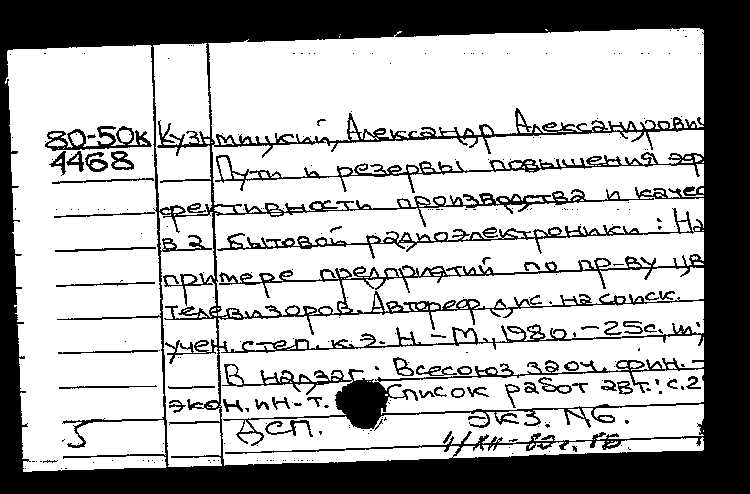 80-50к Кузьмицкий, Александр Александрович
4468 Пути и резервы повышения эф
фективности производства и качес
ва бытовой радиоэлектроники : На
примере предприятий по пр-ву цв
телевизоров. Автореф. дис. на соиск.
учен. степ. к. э. н. - М., 1980. - 25с, ш;
В надзаг: Всесоюз. заоч. фин. -
экон. ин-т. Список работ авт.: с. 2
5 ДСП. экз. N6.